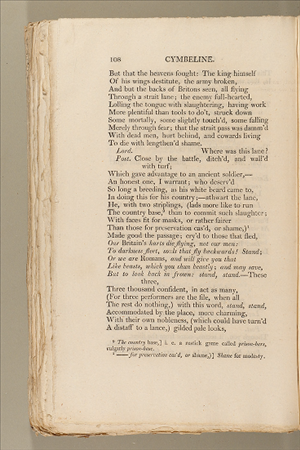 108 CYMBELINE.
But that the heavens fought: The king himself
Of his wings destitute, the army broken,
And but the backs of Britons seen, all flying
Through a strait lane; the enemy full-hearted,
Lolling the tongue with slaughtering, having work
More plentiful than tools to do't, struck down
Some mortally, some slightly touch'd, some falling
Merely through fear; that the strait pass was damm'd
With dead men, hurt behind, and cowards living
To die with lengthen'd shame.
Lord. Where was this lane?
Post. Close by the battle, ditch'd, and wall'd
with turf;
Which gave advantage to an ancient soldier,—
An honest one, I warrant; who deserv'd
So long a breeding, as his white beard came to,
In doing this for his country;—athwart the lane,
He, with two striplings, (lads more like to run
The country base, than to commit such slaughter;
With faces fit for masks, or rather fairer
Than those for preservation cas'd, or shame,)
Made good the passage; cry'd to those that fled,
Our Britain's harts die flying, not our men:
To darkness fleet, souls that fly backwards! Stand;
Or we are Romans, and will give you that
Like beasts, which you shun beastly; and may save,
But to look back in frown: stand, stand.—These
three,
Three thousand confident, in act as many,
(For three performers are the file, when all
The rest do nothing,) with this word, stand, stand,
Accommodated by the place, more charming,
With their own nobleness, (which could have turn'd
A distaff to a lance,) gilded pale looks,
The country base,] i. e. a rustick game called prison-bars,
vulgarly prison-base.
—— for preservation cas'd, or shame,)] Shame for modesty.